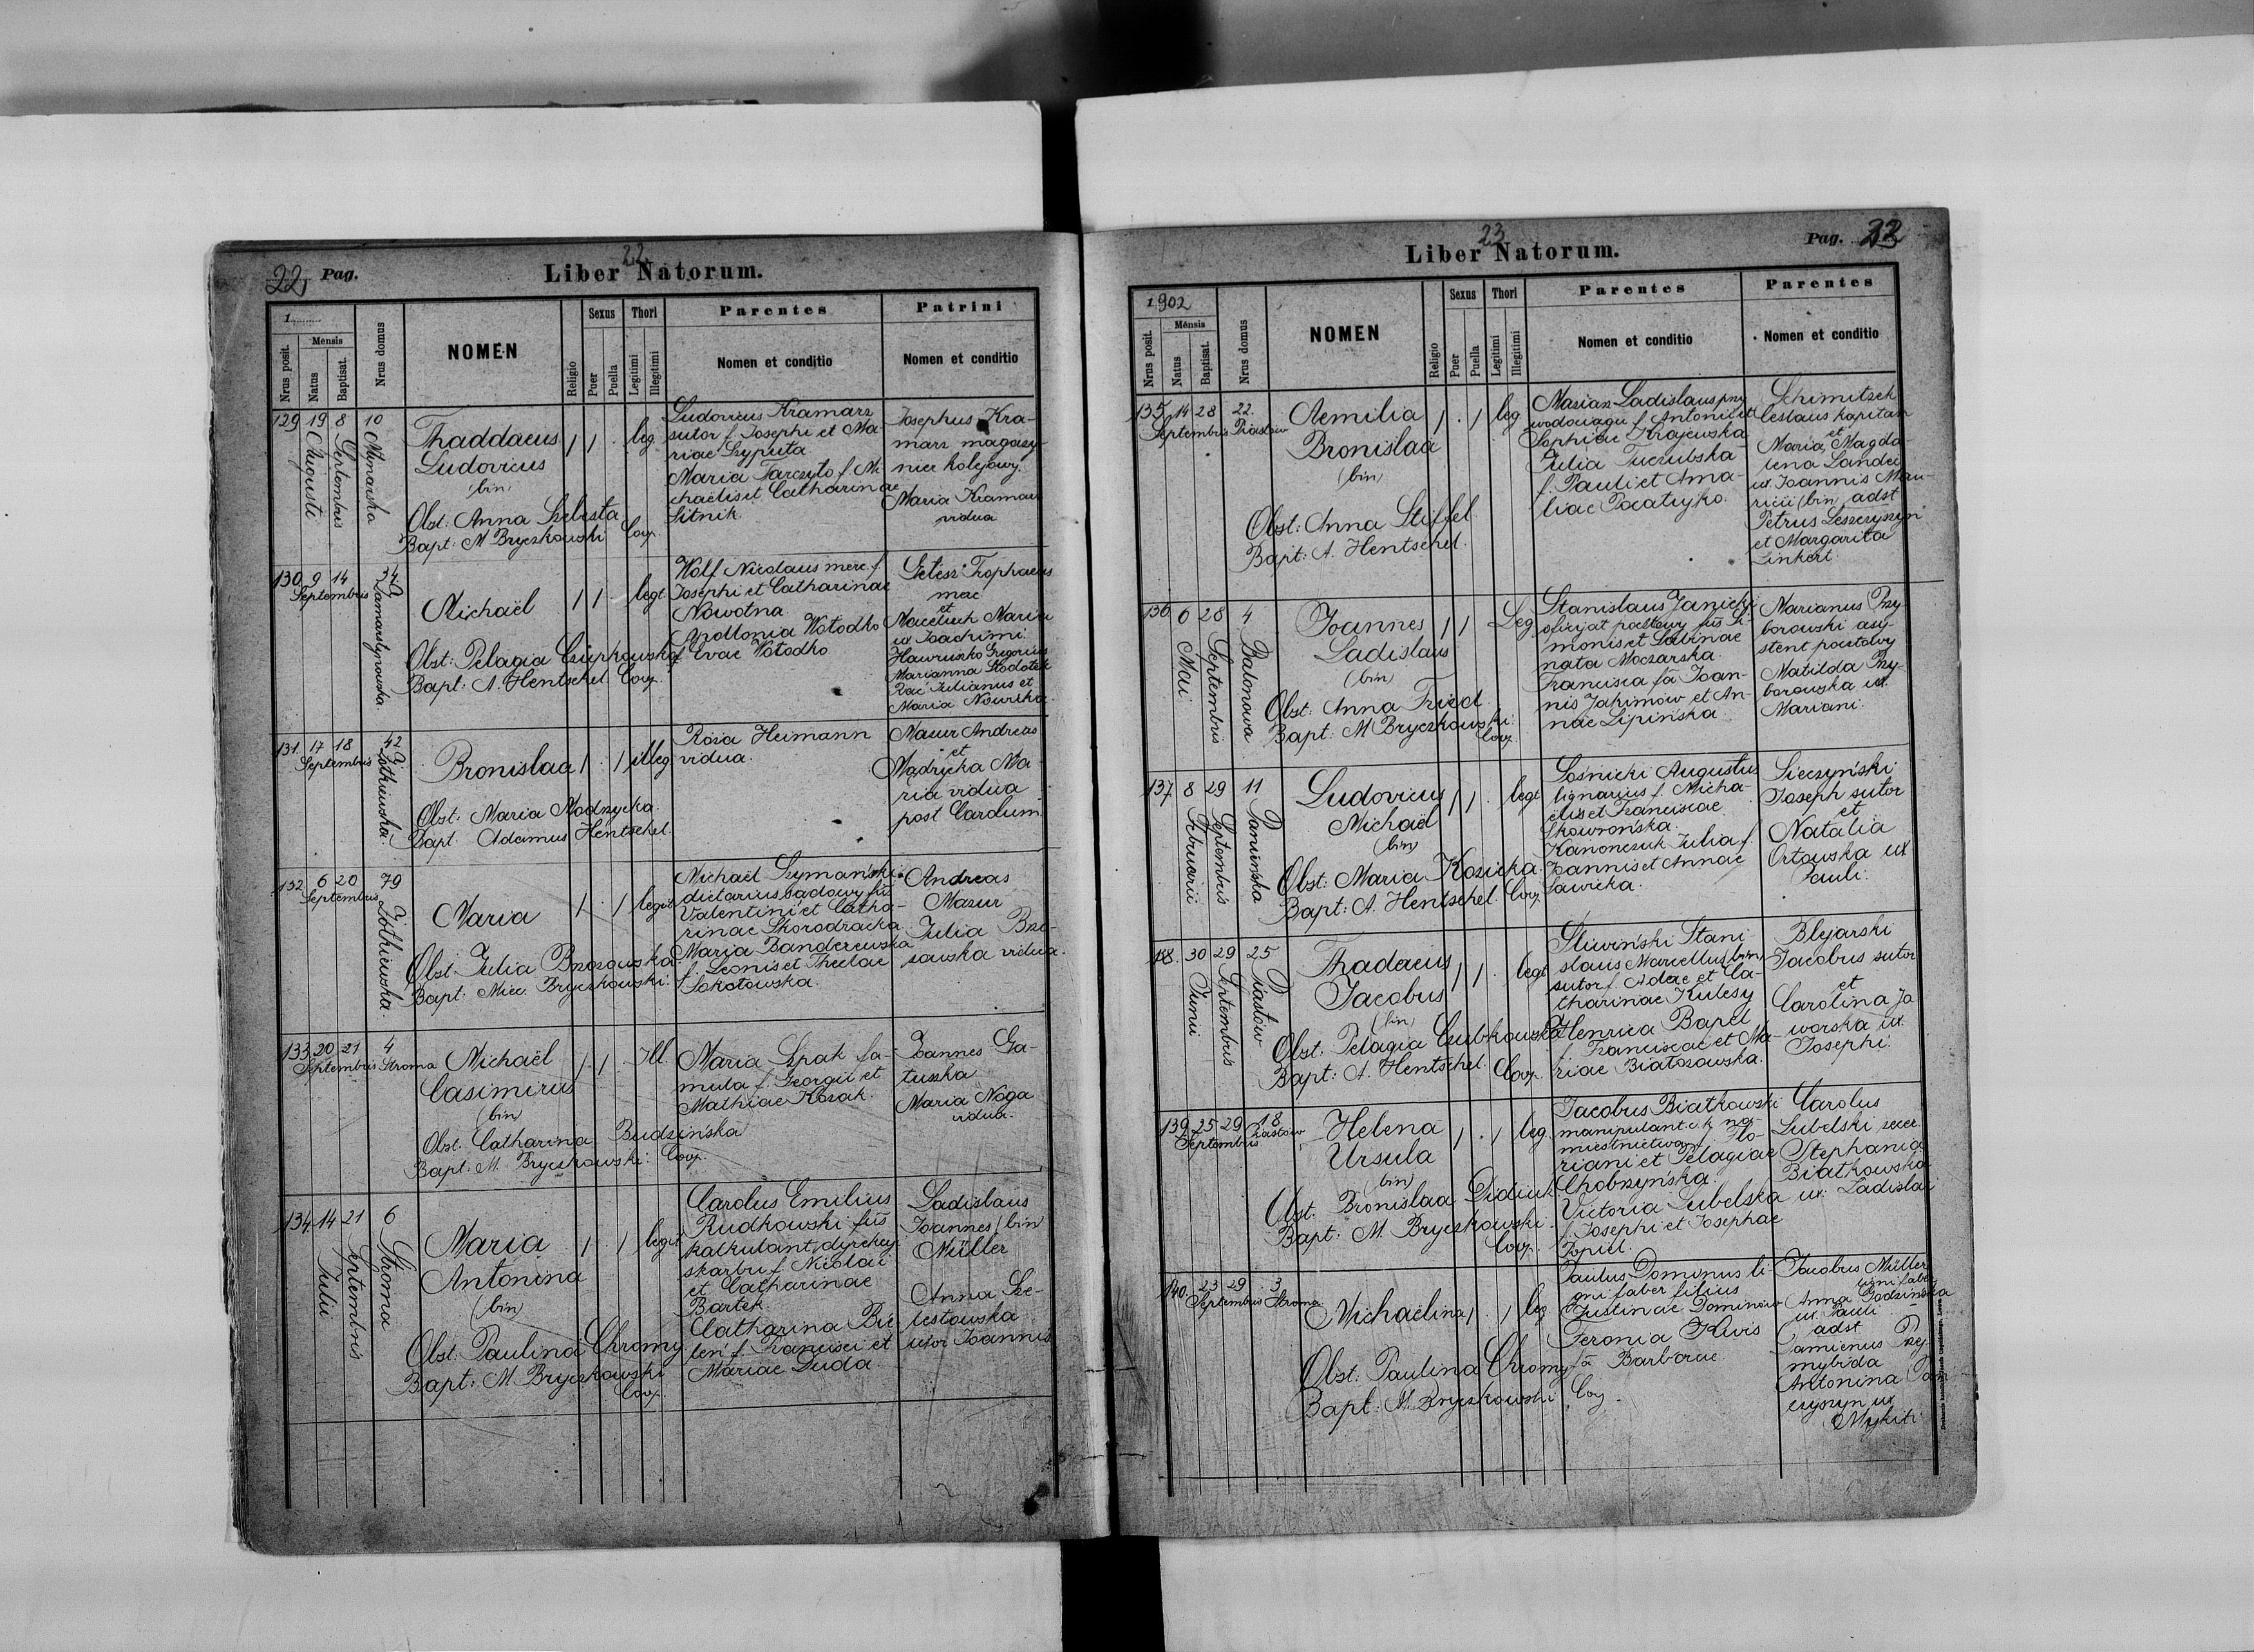 22 Pag.
22
Liber Natorum.
1
Nrus posit.
Mensis
Natus
Baptisat.
Nrus domus
NOMEN
Religio
Sexus
Puer
Puella
Thori
Legitimi
Illegitimi
Parentes
Nomen et conditio
Patrini
Nomen et conditio
129 19 8 10
Augusti
Septembris
Młynarska
Thaddaeus
Ludovicus
(bin)
Obst: Anna Szelesta
Bapt: M Bryczkowski Coop.
1 1 leg.
Ludovicus Kramarz
sutor f. Josephi et Ma-
riae Szyputa
Maria Tarczyło f. Mi
chaelis et Catharinae
Sitnik
Josephus Kra-
marz magazy-
nier kolejowy.
Maria Kramarz
vidua
130 9 14
Septembris
Zamarstynowska
Michaël
Obst: Pelagia Czupkowska
Bapt: A. Hentschel Coop.
1 1 legt
Wolf Nicolaus merc. f
Josephi et Catharinae
Nowotna
Apollonia Wołodko
f Evae Wołodko
et
Maria
ux Joachimi
Hawryszko Gregorius
Marianna
Julianus et
Maria
131. 17 18 42
Septembris
Żółkiewska
Bronislaa
Obst. Maria Madrycka
Bapt. Adamus Hentschel.
1 . 1 illeg
Rosa Heimann
vidua.
Mazur Andreas
et
Mądrycka Ma-
ria vidua
post Carolum
132 6 20 79
Septembris
Żółkiewska.
Maria
Obst. Julia Brzozowska
Bapt. Miec. Bryczkowski.
1 . 1 legit
Michael Szymański
dietarius sądowy fus
Valentini et Catha-
rinae Skorodracka
Maria Banderewska
f. Leonis et Theclae
Sokołowska.
Andreas
Mazur
Julia Brzo-
zowska vidua.
133 20 21 4
Septembris Stroma
Michaël
Casimirus
(bin)
Obst. Catharina Budzińska
Bapt. M. Bryczkowski Coop.
1 1 Ill.
Maria Szpak fa-
mula f. Georgii et
Mathiae Kozak.
Joannes Ga-
łuszka
Maria Noga
vidua.
134 14 21 6
Julii
Septembris
Stroma
Maria
Antonina
(bin)
Obst: Paulina Chromy
Bapt: M. Bryczkowski
Coop.
1 . 1 legit
Carolus Emilius
Rudkowski fus
kalkulant dyrekcyi
skarbu f. Nicolai
et Catharinae
Bartek.
Catharina Bie
leń f. Francisci et
Mariae Duda
Ladislaus
Joannes (bin)
Müller
Anna Sze-
lestowska
uxor Joannis
23
Liber Natorum.
Pag.
1902
Nrus posit.
Mensis
Natus
Baptisat.
Nrus domus
NOMEN
Religio
Sexus
Puer
Puella
Thori
Legitimi
Illegitimi
Parentes
Nomen et conditio
Parentes
Nomen et conditio
135 14 28 22.
Septembris Piastów
Aemilia
Bronislaa
(bin)
Obst: Anna Stiffel
Bapt: A. Hentschel.
1 . 1 leg
Marian Ladislaus przy
wodociągu f. Antonii et
Sophiae Krajewska
Julia Tuczubska
f. Pauli et Ama-
liae Pacatyko.
Schimitzek
Ceslaus kapitan
et
Maria Magda-
lena Landei
ux Joannis Mau-
ricii (bin) adst
Petrus Leszczyszyn
et Margarita
Linkert.
136 6 28 4
Maii
Septembris
Balonowa
Joannes
Ladislaus
(bin)
Obst: Anna Fried
Bapt: M Bryczkowski
Coop.
1 1 Leg
Stanislaus Janicki
oficyał pocztowy fus Si-
monis et Sabinae
nata Moczarska.
Francisca fa Joan-
nis Jakimów et An-
nae Lipińska
Marianus Przy-
borowski asy-
stent pocztowy
Matilda Przy-
borowska ux.
Mariani.
137 8 29 11
Februarii
Septembris
Panieńska
Ludovicus
Michael
(bin)
Obst: Maria Kozicka
Bapt: A. Hentschel. Coop.
1 1 . legt
Łośnicki Augustus
lignarius f. Micha-
elis et Franciscae
Skowrońska.
Kanonczuk Julia f.
Joannis et Annae
Sawicka.
Sieczyński
Joseph sutor
et
Natalia
Orłowska ux
Pauli.
30 29 25
Junii
Septembris
Piastów
Thadaeus
Jacobus
(bin)
Obst: Pelagia Czubkowska
Bapt: A. Hentschel. Coop.
1 1 . legt
Śliwiński Stani-
slaus Marcellus (bin)
sutor f. Adae et Ca-
tharinae Kulesy
Henrica Bapel
f. Franciscae et Ma-
riae Białosowska.
Blejarski
Jacobus sutor
et
Carolina Ja
worska ux.
Josephi.
139 25 29 18
Septembris Piastów
Helena
Ursula
(bin)
Obst. Bronislaa Didiuk
Bapt: M. Bryczkowski.
Coop.
1 . 1 leg
Jacobus Białkowski
manipulant c. k. na-
miestnictwa f. Flo-
riani et Pelagiae
Chobrzyńska.
Victoria Lubelska
f. Josephi et Josephae
Popiel.
Carolus
Lubelski
Stephania
Białkowska
ux. Ladislai
140. 23 29 3
Septembris Stroma
Michaëlina
Obst: Paulina Chromy
Bapt: M. Bryczkowski Coop.
1 . 1 leg
Paulus Dominus li
gni faber filius
Justinae Dominów
Feronia Kwis
fa Barbarae
Jacobus Müller
ligni faber
Anna Godzińska
ux. Pauli
adst
Damienus Przy
mybida
Antonina
ux
Mykiti